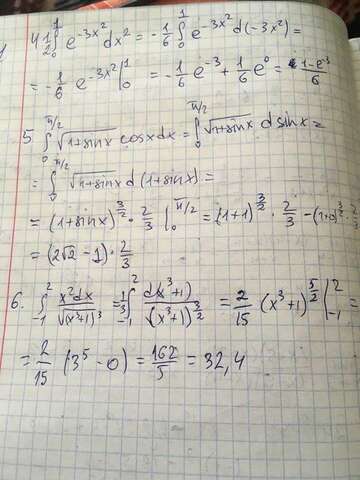 4. 1/2 ∫₀¹ e^(-3x²) dx² = -1/6 ∫₀¹ e^(-3x²) d(-3x²) =
= -1/6 e^(-3x²) |₀¹ = -1/6 e^(-3) + 1/6 e⁰ = (1-e^(-3))/6
5. ∫₀^(π/2) √(1+sinx) cosxdx = ∫₀^(π/2) √(1+sinx) d sinx =
= ∫₀^(π/2) √(1+sinx) d(1+sinx) =
= (1+sinx)^(3/2) · 2/3 |₀^(π/2) = (1+1)^(3/2) · 2/3 - (1+0)^(3/2) · 2/3 =
= (2√2 - 1) · 2/3
6. ∫₋₁² x²dx/√(x³+1)³ = 1/3 ∫₋₁² d(x³+1)/(x³+1)^(3/2) = 2/15 (x³+1)^(5/2) |₋₁² =
= 2/15 (3⁵ - 0) = 162/5 = 32,4